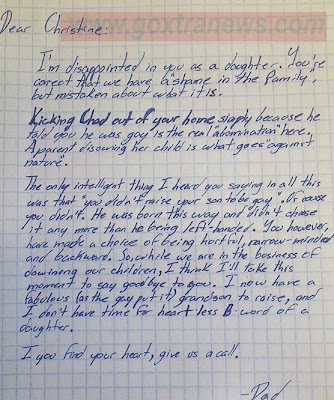 www.goxtranews.com
Dear Christine:
I'm disappointed in you as a daughter. You're
correct that we have a "shame in the family",
but mistaken about what it is.
Kicking Chad out of your home simply because he
told you he was gay is the real "abomination" here.
A parent disowning her child is what goes "against
nature".
The only intelligent thing I heard you saying in all this
was that "you didn't raise your son to be gay". Of course
you didn't. He was born this way and didn't choose
it any more than he being left-handed. You however,
have made a choice of being hurtful, narrow-minded
and backward. So, while we are in the business of
disowning our children, I think I'll take this
moment to say goodbye to you. I now have a
fabulous (as the gay put it) grandson to raise, and
I don't have time for heart less B-word of a
daughter.
If you find your heart, give us a call.
-Dad